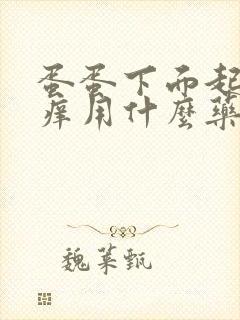 蛋蛋下面起
痒用什麼藥
魏葉甄